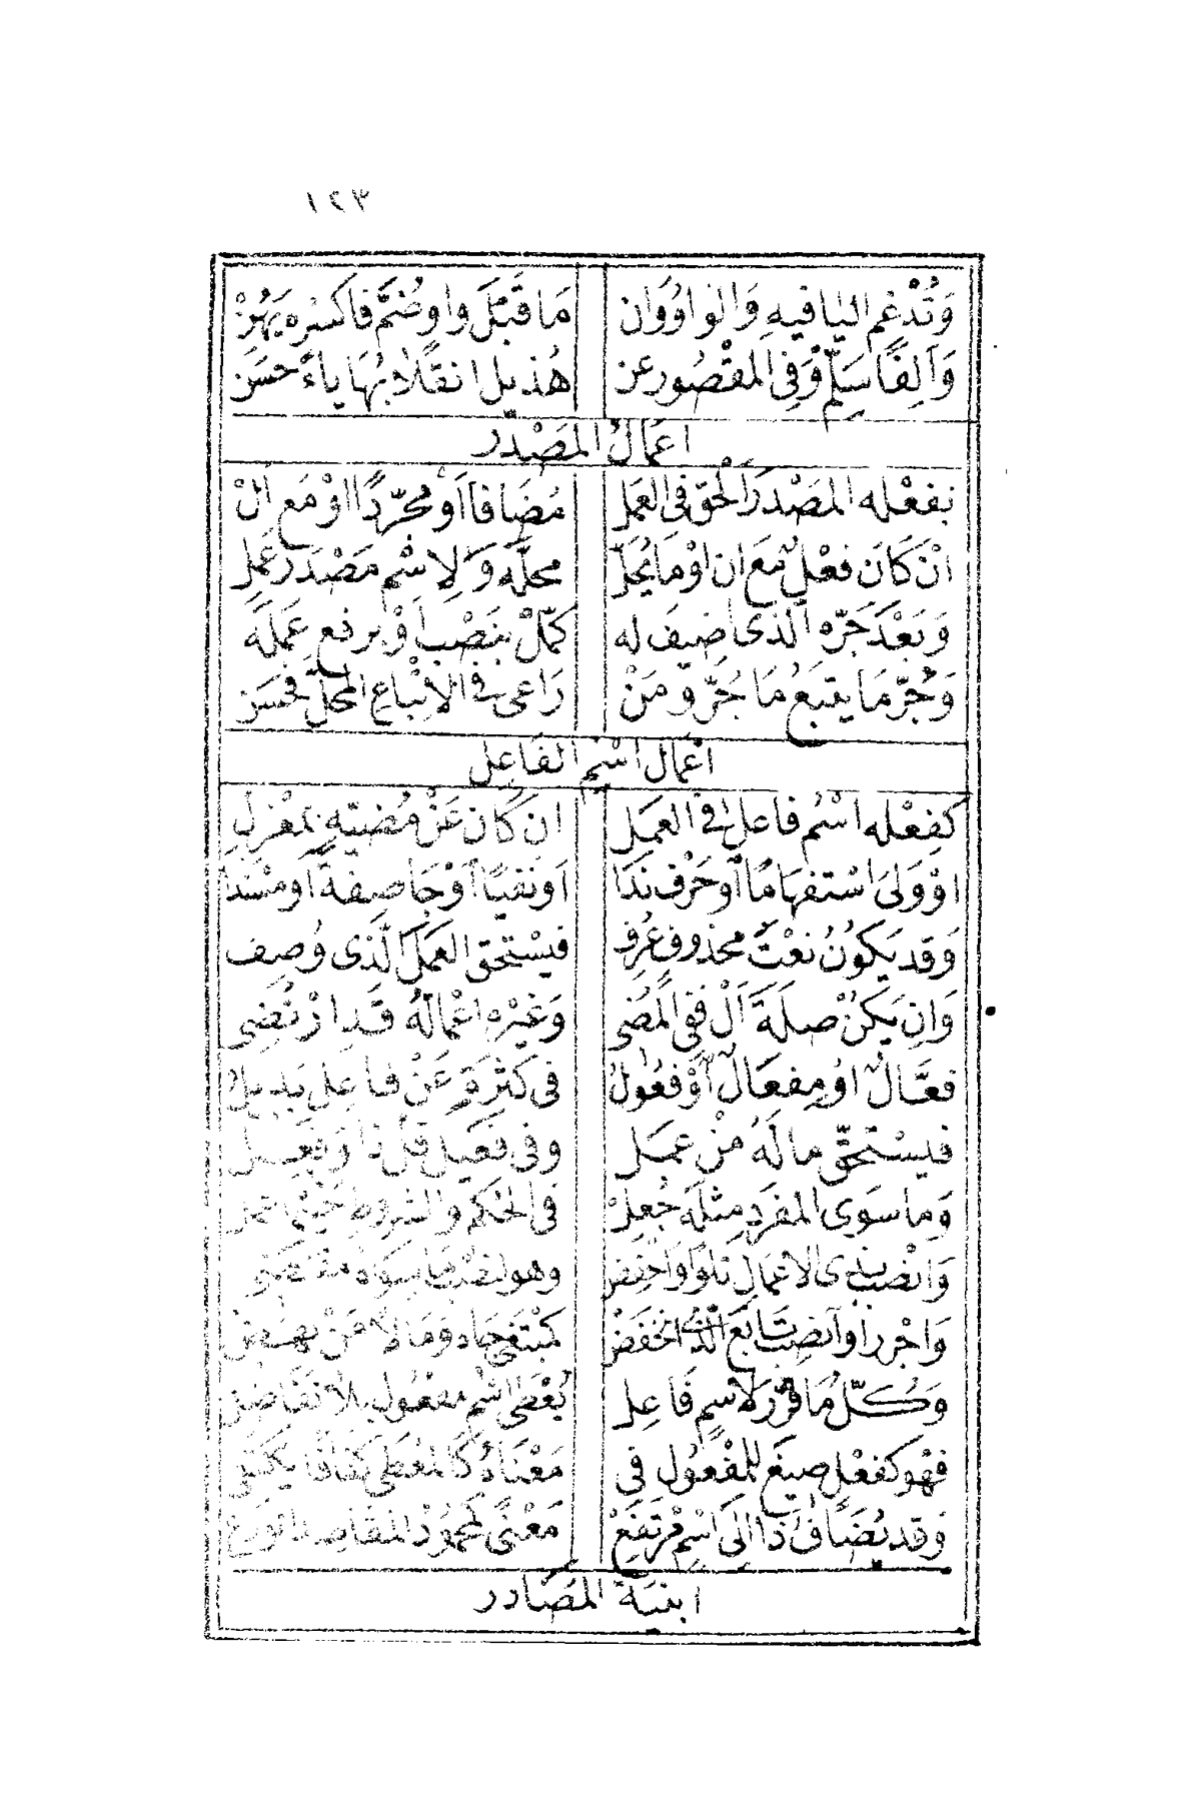 ١٢٣
وَتُدْغَم اليا فيهِ وَالواوُ وَان مَا قَبْلَ وَاوٍ ضُمَّ فاكسِرْه يَهُنْ
وَاَلِفًا سَلِّمْ وَفى المقْصُور عن هُذيل انقلابُهَا ياءً حَسَن
اعْمَالُ المَصْدَر
بفعْله المَصْدَرَ الحق فى العَمَل مُضَافا اَوْ مجرّدًا اوْ مَع اَلْ
انْ كَانَ فعْلٌ مَعَ ان اوْ مَا يَحُلّ محلَّه وَلِاسْم مَصْدَرٍ عَمَل
وَبَعْدَ جَرّه الّذى اضيفَ له كمّلْ بنَصْب اَوْ برفع عَمَلَه
وَجُرَّ مَا يتبَعُ مَا جُرَّ ومَنْ رَاعى فى الاِتْباع المَحلّ فحَسَن
اعْمال اسْم الفَاعِل
كَفِعْله اسْمُ فاعل فى العمَل ان كَان عَنْ مُضيّهِ بمَعْزِلِ
اوْ وَلىَ اسْتفهَامًا اَوْ حَرْف نَدَا اَو نفيًا اَوْ جَا صِفةً اَو مُسْنَدا
وَقد يَكُونُ نعْتَ محذوفٍ عُرِف فيسْتحق العَمَلَ الَّذى وُصِف
وَاِن يَكنْ صلَةَ اَلْ ففى المُضى وَغَيْرِه اعْمَالُهُ قَدِ ارْتُضِى
فعّالٌ اوْ مِفعَالٌ اَوْ فعُولُ فى كَثرَةٍ عَنْ فاعِلٍ بَدِيلُ
فيسْتحقّ مالَهُ مْن عمَل وَفى فَعيل قلّ ذا وَفَعِل
وَما سوَى المفرَدِ مثلَه جُعِلْ فى الحكم والشروط حَيْثما عَمل
وَانْصبْ بذى الاعمَال تلْوًا وَاخْفِض وهو لنصْب مَا سِوَاهُ مقتضى
وَاجْرر اَو انصبْ تابعَ الّذى انخفَضْ كمُبْتغى جَاهٍ وَمَالاً مَنْ نهَضْ
وَكُلّ مَا قُرّرَ لاسْمِ فَاعِل يُعْطى اسْم مفعُول بلاَ تفَاضل
فهْو كفعْل صِيغَ للمفْعُول فى مَعْنَاهُ كالمُعْطى كفَافًا يكتَفِى
وَقد يُضَافُ ذا الى اسْمٍ مُرْتفعْ مَعْنًى كمحمُودُ المقَاصِد الوَرِعْ
ابنيَة المَصَادر